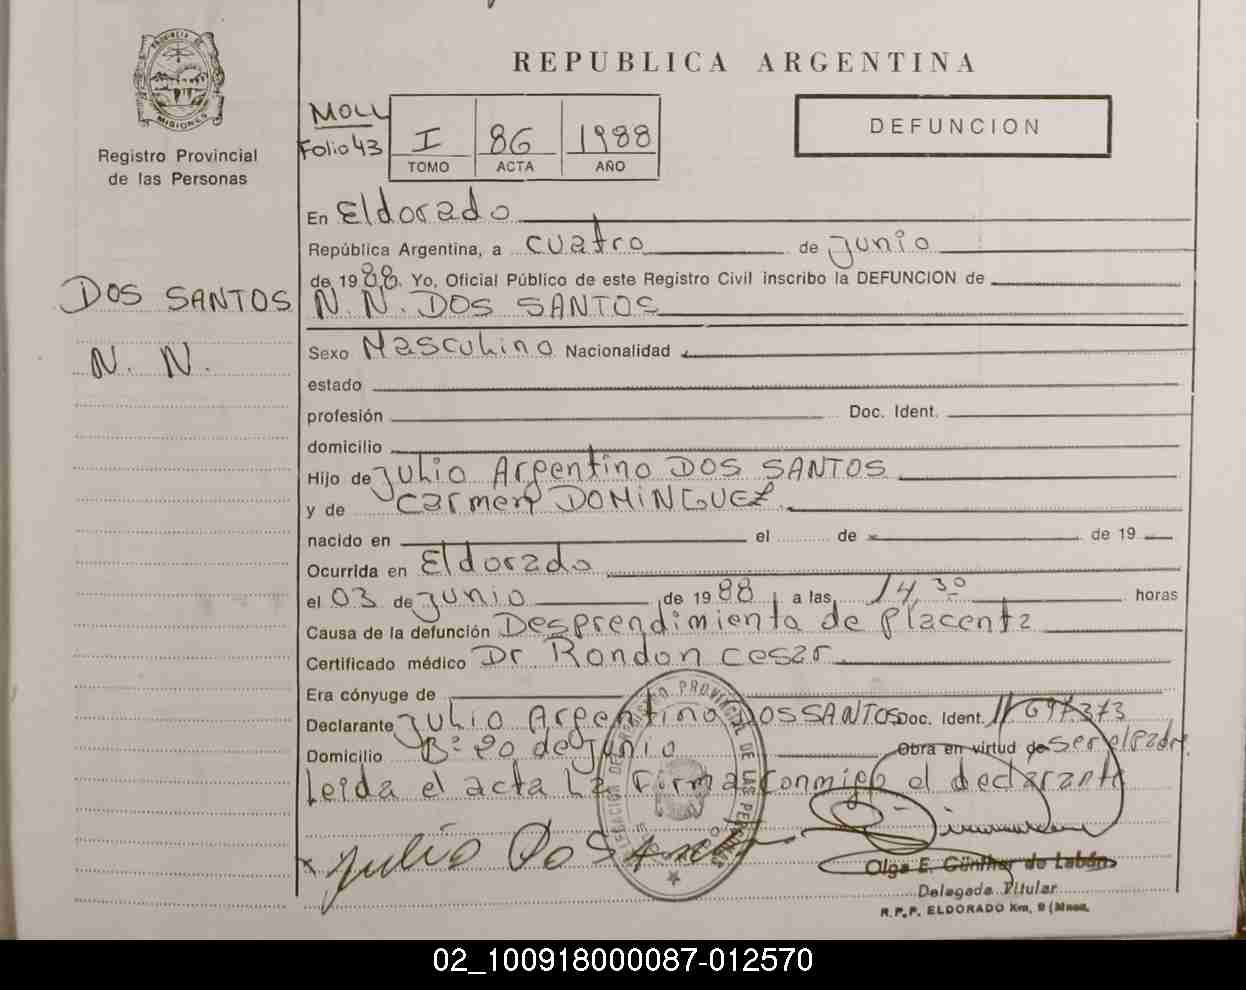 PROVINCIA DE
MISIONES
Registro Provincial
de las Personas
DOS SANTOS
N. N.
REPUBLICA ARGENTINA
MOLL
Folio 43
I 86 1988
TOMO ACTA AÑO
DEFUNCION
En Eldorado
República Argentina, a cuatro de junio
de 1988. Yo, Oficial Público de este Registro Civil inscribo la DEFUNCION de
N. N. DOS SANTOS
Sexo Masculino Nacionalidad
estado
profesión Doc. Ident.
domicilio
Hijo de Julio Argentino DOS SANTOS
y de Carmen DOMINGUEZ
nacido en el de de 19
Ocurrida en Eldorado
el 03 de junio de 1988 a las 14,30 horas
Causa de la defunción Desprendimienta de placenta
Certificado médico Dr Rondon cesar
Era cónyuge de
Declarante Julio Argentino DOS SANTOS Doc. Ident. 11697.373
Domicilio B° 20 de Junio Obra en virtud de ser el padre
Leida el acta La firma conmigo el declarante
Julio Dos Santos
Olga E. Günther de Labán
Delegada Titular
R.P.P. ELDORADO Km. 9 (Mnes.
02_100918000087-012570